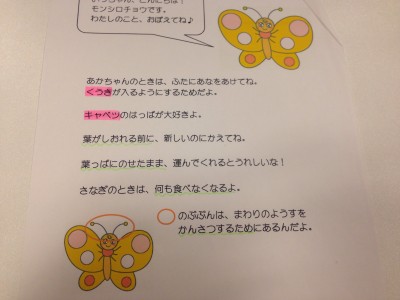 モンシロチョウです。
わたしのこと、おぼえてね♪
あかちゃんのときは、ふたにあなをあけてね。
くうきが入るようにするためだよ。
キャベツのはっぱが大好きよ。
葉がしおれる前に、新しいのにかえてね。
葉っぱにのせたまま、運んでくれるとうれしいな！
さなぎのときは、何も食べなくなるよ。
のぶぶんは、まわりのようすを
かんさつするためにあるんだよ。